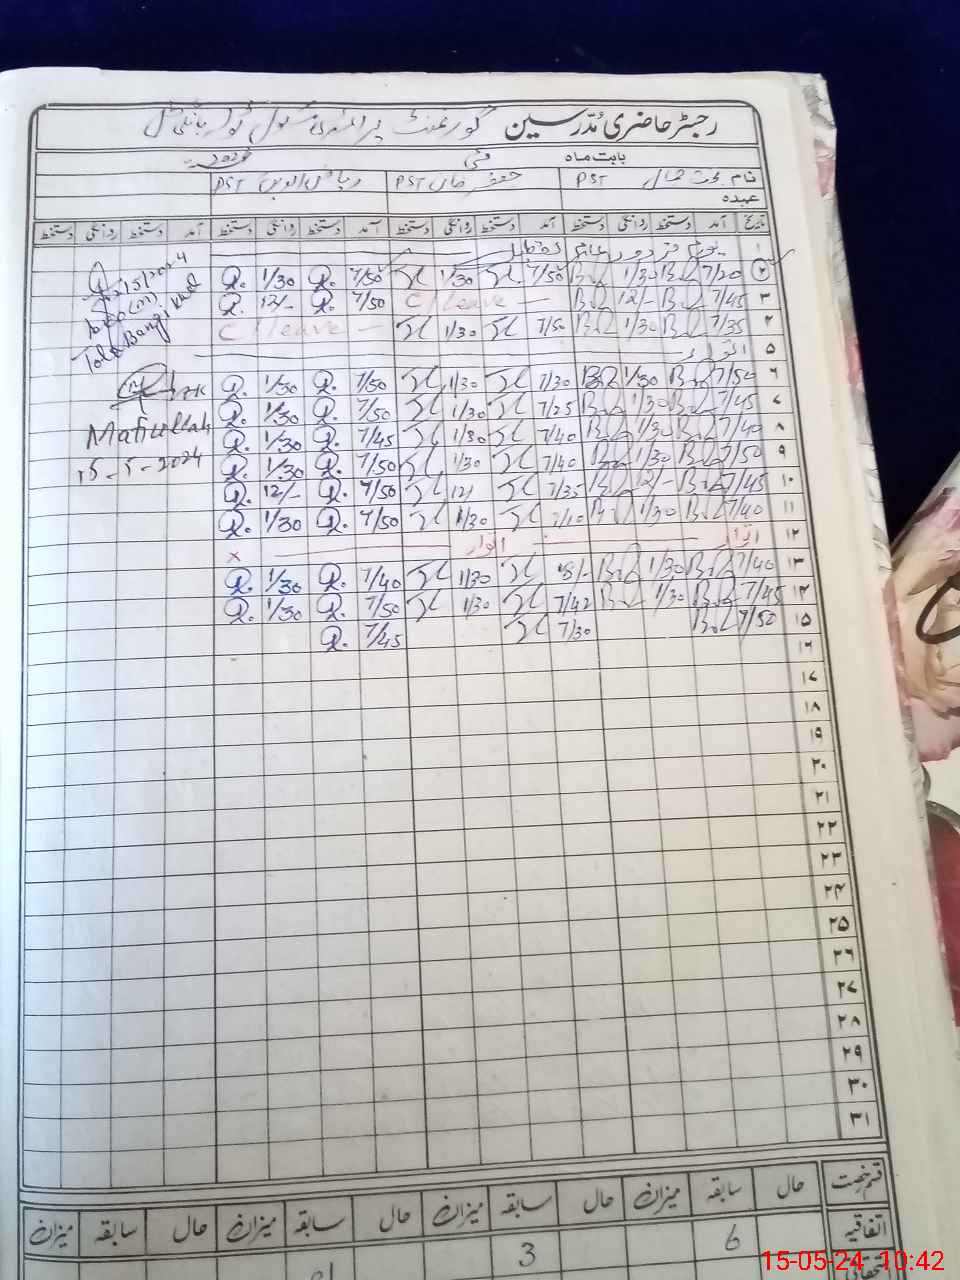 رجسٹر حاضری مدرسین گورنمنٹ پرائمری سکول
بابت ماہ مئی
نام PST جعفر خان PST ریاض الدین PST
عہدہ
تاریخ آمد دستخط روانگی دستخط آمد دستخط روانگی دستخط آمد دستخط روانگی دستخط آمد دستخط روانگی دستخط
۱ یوم مزدور
۲ 7/20 1/30 7/50 1/30 7/50 1/30
۳ 7/45 12/- C/Leave 7/50 12/-
۴ 7/35 1/30 7/50 1/30 C/leave
۵ اتوار
۶ 7/50 1/30 7/30 1/30 7/50 1/30
۷ 7/45 1/30 7/25 1/30 7/50 1/30
۸ 7/40 1/30 7/40 1/30 7/45 1/30
۹ 7/50 1/30 7/40 1/30 7/50 1/30
۱۰ 7/45 12/- 7/35 12/ 7/50 12/-
۱۱ 7/40 1/30 1/30 7/50 1/30
۱۲ اتوار اتوار ×
۱۳ 7/40 1/30 8/- 1/30 7/40 1/30
۱۴ 7/45 1/30 7/42 1/30 7/50 1/30
۱۵ 7/50 7/30 7/45
۱۶
۱۷
۱۸
۱۹
۲۰
۲۱
۲۲
۲۳
۲۴
۲۵
۲۶
۲۷
۲۸
۲۹
۳۰
۳۱
15/2024
Tola Bangi Khel
Matiullah
15-5-2024
قسم رخصت حال سابقہ میزان حال سابقہ میزان حال سابقہ میزان حال سابقہ میزان
اتفاقیہ 6 3
15-05-24 10:42